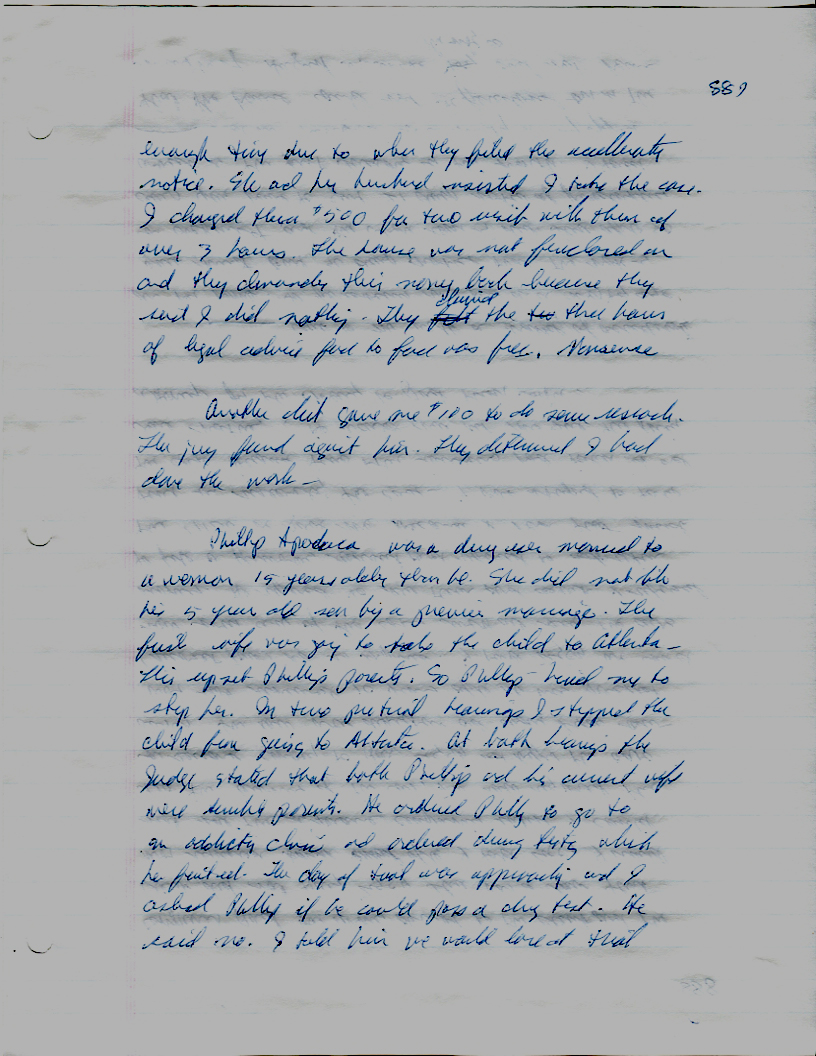 889
enough time due to when they filed the accelerate
notice. She ad her husband insisted I take the case.
I charged them $500 for two visit with them of
over 3 hours. The house was not foreclosed on
and they demanded this money back because they
said I did nothing. They claimed the three hours
of legal advice face to face was free. Nonsense
Another client gave me $100 to do some research.
The jury found against him. They determined I had
done the work —
Phillip Apodaca was a drug user married to
a woman 15 years older than he. She did not like
his 5 year old son by a previous marriage. The
first wife was going to take the child to Atlanta —
This upset Phillip's parents. So Phillip hired me to
stop her. In two pretrial hearings I stopped the
child from going to Atlanta. At both hearings the
Judge stated that both Phillip and his current wife
were terrible parents. He ordered Phillip to go to
an addiction clinic and ordered drug testing which
he flunked. The day of trial was approaching and I
asked Phillip if he could pass a drug test. He
said no. I told him we would lose at trial